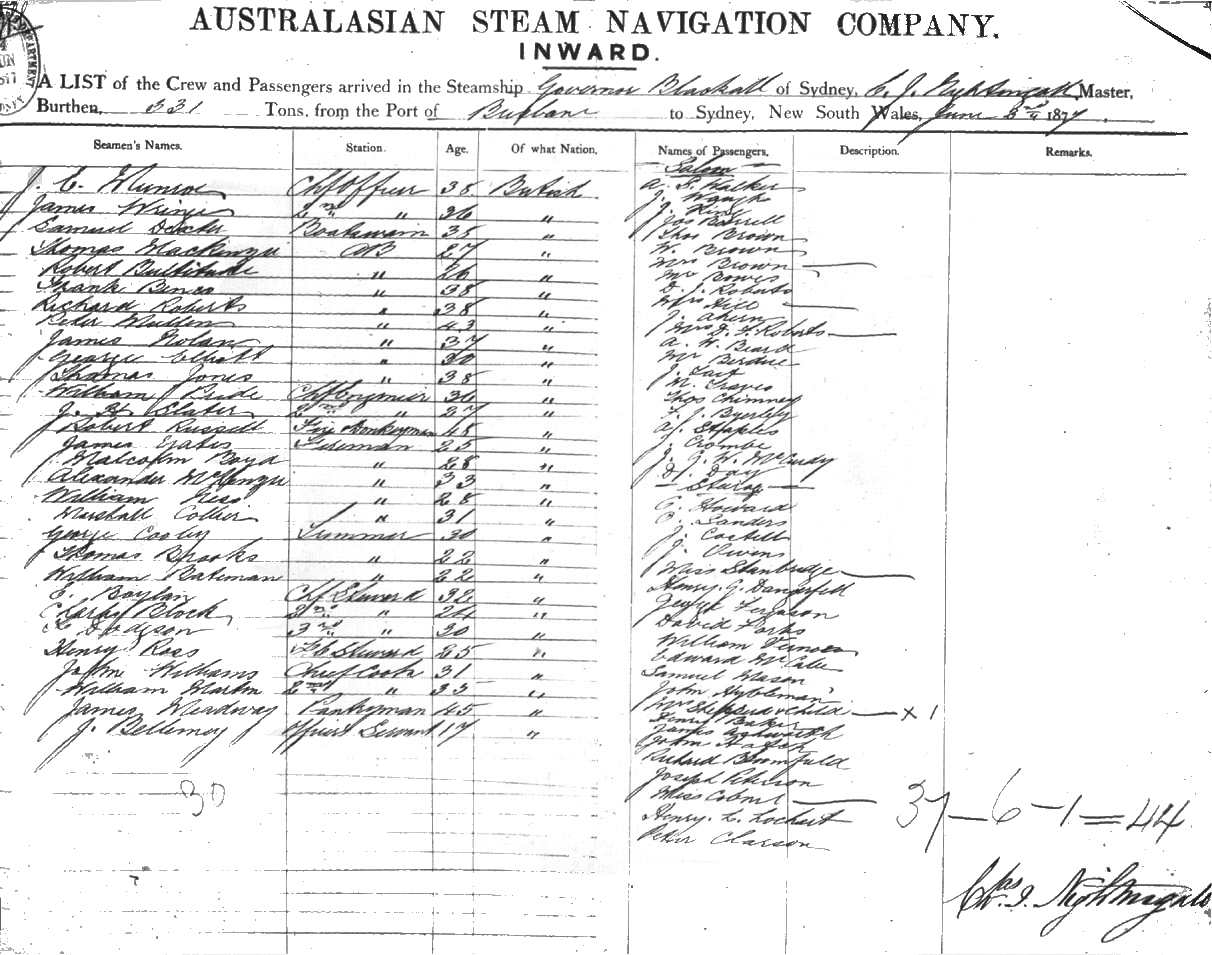 AUSTRALASIAN STEAM NAVIGATION COMPANY.
INWARD.
A LIST of the Crew and Passengers arrived in the Steamship Governor Blackall of Sydney, C. J. Nightingale Master,
Burthen, 531 Tons, from the Port of Brisbane to Sydney, New South Wales, June 1877
Seamen's Names. Station. Age. Of what Nation. Names of Passengers. Description. Remarks.
J. C. Munroe Chf Officer 38 British
James 2nd " 36 "
Samuel Boatswain 35 "
Thomas Mackenzie AB 27 "
Robert Bultitude " 26 "
Frank " 38 "
Richard Roberts " 38 "
Peter Mullen " 43 "
James Nolan " 37 "
George Elliott " 30 "
Thomas Jones " 38 "
William Pride Chf Engineer 36 "
J. H. Slater 2nd " 27 "
Robert Russell Donkeyman 48 "
James Fireman 25 "
Malcolm Boyd " 28 "
Alexander McKenzie " 33 "
William " 28 "
Marshall Collier " 31 "
George Cosby Trimmer 30 "
Thomas Brooks " 22 "
William Bateman " 22 "
E. Boylan Chf Steward 32 "
Charles Block 2nd " 24 "
Dodgson 3rd " 30 "
Henry Ross F.C. Steward 25 "
John Williams Chief Cook 31 "
William Martin 2nd " 35 "
James Meadway Pantryman 45 "
J. Bellemey Officers Servant 17 "
30
Saloon
A. S. Walker
J. Waugh
J. King
Jos Borrell
Thos Brown
W. Brown
Mrs Brown
Mr Bowes
D. J. Roberts
Mrs Hill
J. Ahern
Mrs D. J. Roberts
A. W. Beard
Mr Birdue
J. Tait
M. Graves
Thos Chimney
F. J. Byerley
A. Staples
J. Crombe
J. G. W. McCurdy
D. J. Day
Steerage
C. Howard
C. Sanders
J. Costell
J. Owens
Miss Stanbridge
Henry G. Dangerfield
George Ferguson
David Forbs
William Vernon
Edward McCabe
Samuel Mason
John
Mrs Shepperd & Child x 1
Henry Baker
James Ashworth
John
Richard Bloomfield
Joseph Peterson
Miss
Henry L. Lockert
Peter Clarson
37 - 6 - 1 = 44
Chas. J. Nightingale